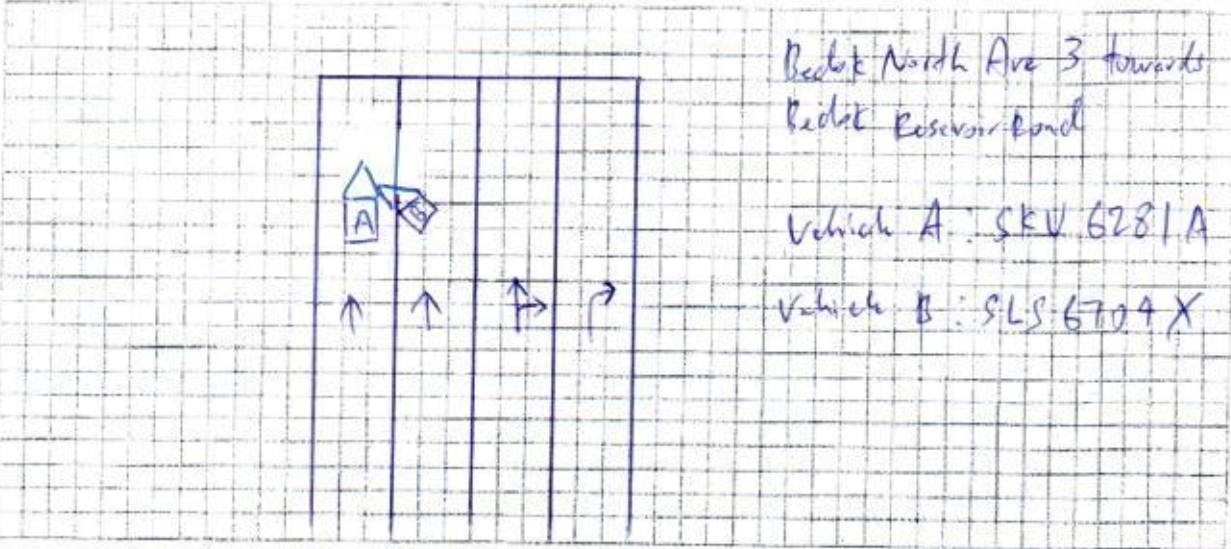 Bedok North Ave 3 towards
Bedok Reservoir Road
A
B
Vehicle A : SKV 6281 A
Vehicle B : SLS 6704 X